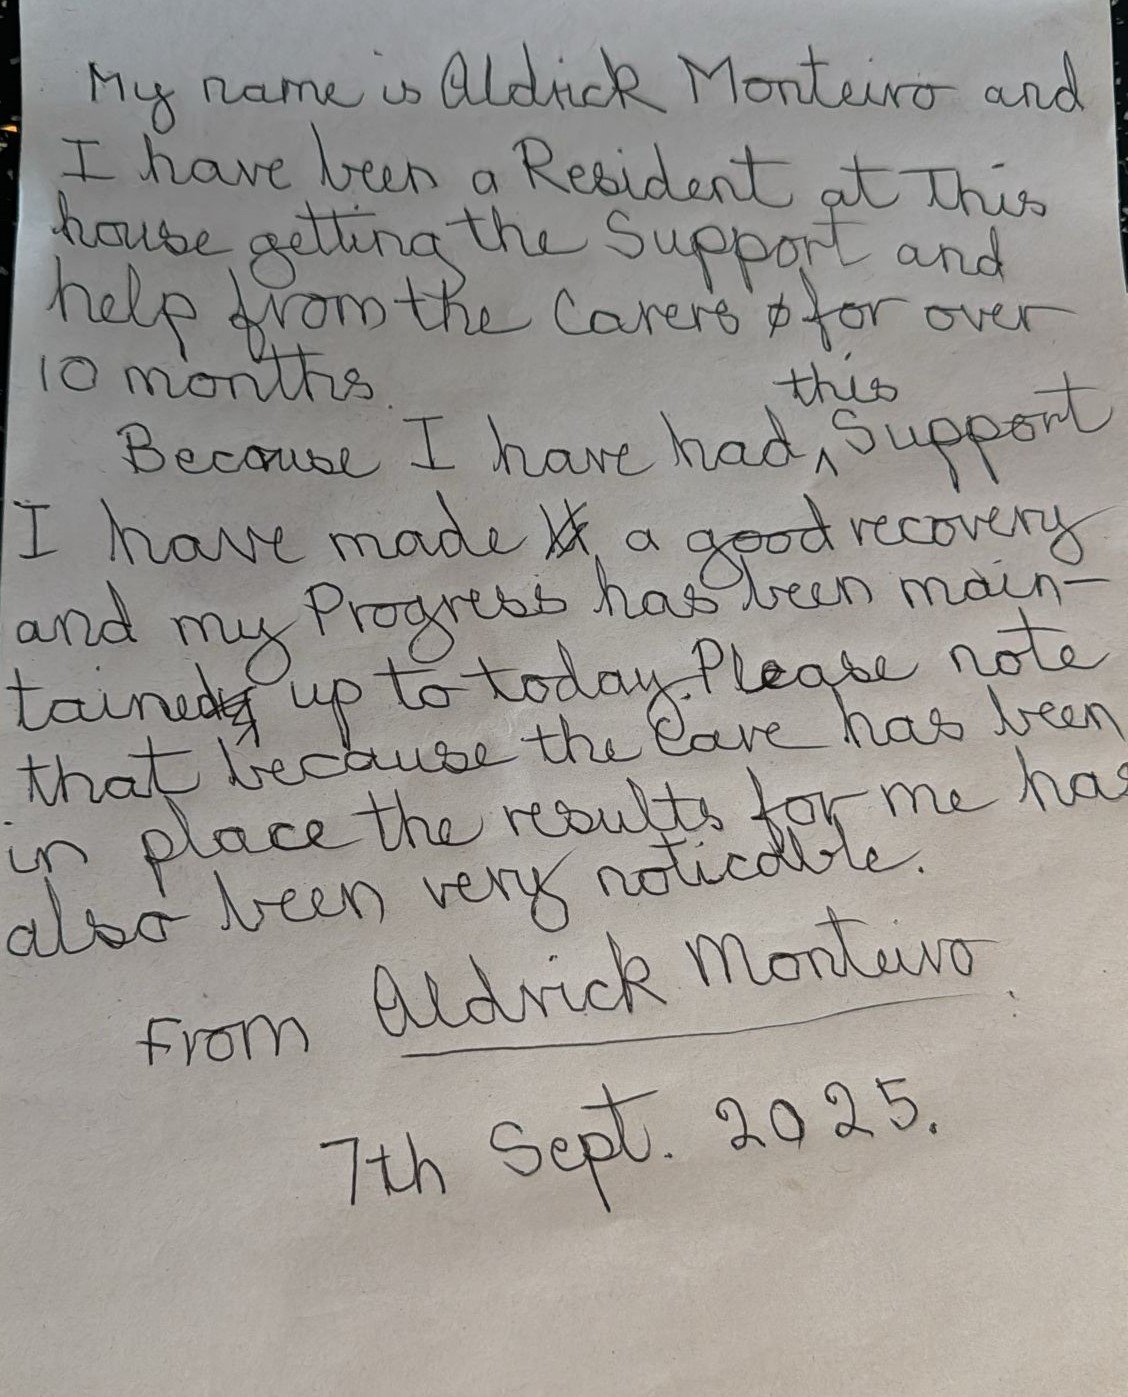 My name is Aldrick Monteiro and
I have been a Resident at This
house getting the Support and
help from the Carers for over
10 months.
Because I have had this Support
I have made a good recovery
and my Progress has been main-
tained up to today. Please note
that because the Care has been
in place the results for me has
also been very noticable.
From Aldrick Monteiro.
7th Sept. 2025.